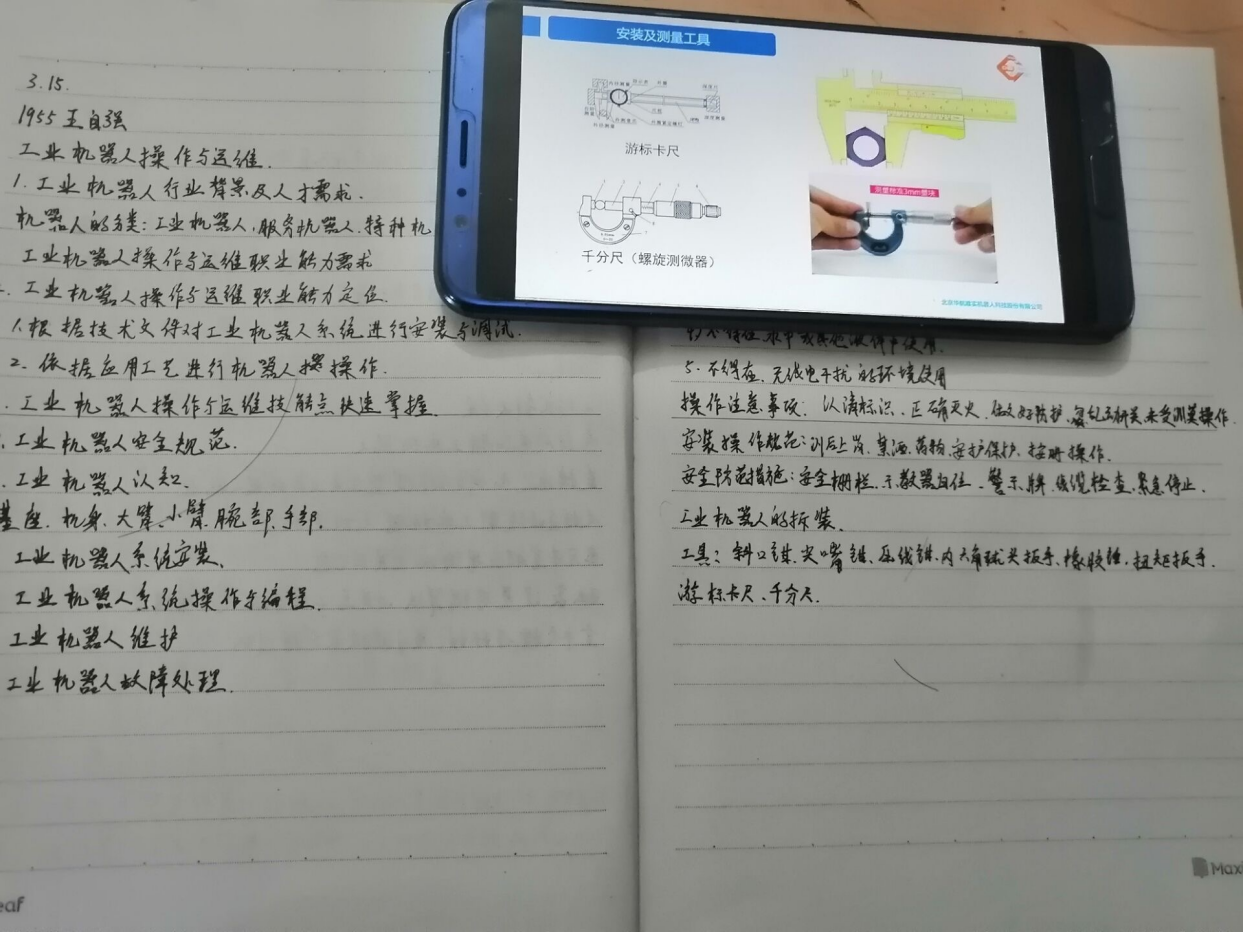 3.15.
1955 王自强
工业机器人操作与运维.
1.工业机器人行业背景及人才需求.
机器人的分类:工业机器人,服务机器人,特种机
工业机器人操作与运维职业能力需求
.工业机器人操作与运维职业能力定位.
1.根据技术文件对工业机器人系统进行安装与调试.
2.依据应用工艺进行机器人操作.
.工业机器人操作与运维技能点快速掌握.
.工业机器人安全规范.
.工业机器人认知.
基座、机身、大臂、小臂、腕部、手部.
工业机器人系统安装.
工业机器人系统操作与编程.
工业机器人维护
工业机器人故障处理.
安装及测量工具
游标卡尺
千分尺（螺旋测微器）
测量标准3mm塞块
北京华航唯实机器人科技股份有限公司
5.不得在、无线电干扰的环境使用
操作注意事项: 认清标识、正确灭火、做好防护、
安装操作规范:训后上岗、禁酒、药物、安护保护、按册操作.
安全防范措施:安全栅栏、示教器归位、警示牌、线缆检查、紧急停止.
工业机器人的拆装.
工具:斜口钳、尖嘴钳、压线钳、内六角球头扳手、橡胶锤、扭矩扳手.
游标卡尺、千分尺.
Maxl
eaf